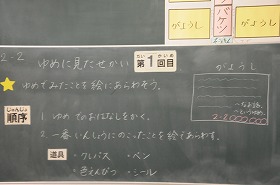 がようし
バケツ
がようし
2-2 ゆめに見たせかい
だい かいめ
第1回目
ゆめでみたことを絵にあらわそう。
じゅんじょ
順序
1. ゆめでのおはなしをかく。
2. 一番いんしょうにのこったことを絵であらわす。
道具 ・クレパス ・ペン
・色えんぴつ ・シール
がようし